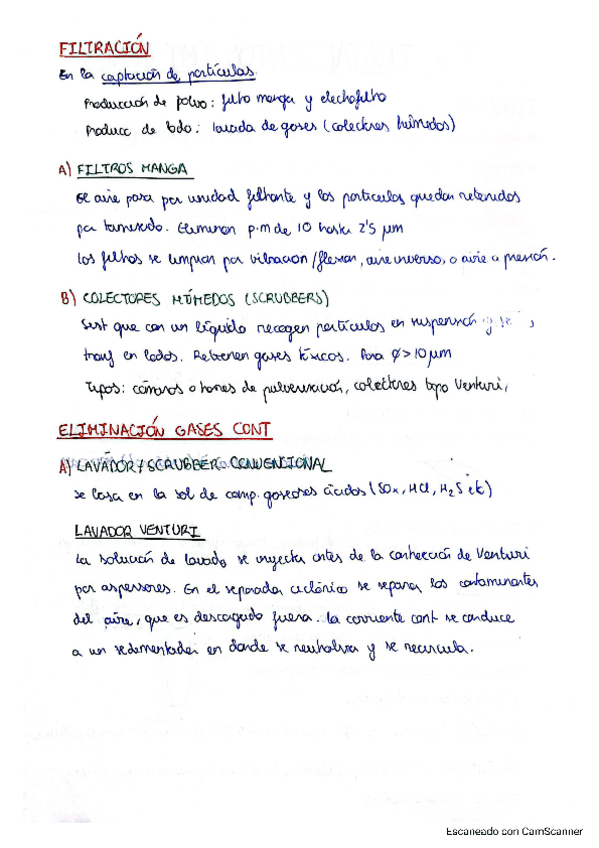 FILTRACIÓN
En la captación de partículas.
Producción de polvo: filtro manga y electrofiltro
Producc de lodo: lavada de gases (colectores húmedos)
A) FILTROS MANGA
El aire pasa por unidad filtrante y las partículas quedan retenidas
por tamizado. Eliminan p.m de 10 hasta 2'5 µm
Los filtros se limpian por vibración/flexión, aire inverso, o aire a presión.
B) COLECTORES HÚMEDOS (SCRUBBERS)
Sist que con un líquido recogen partículas en suspensión y se
transf en lodos. Retienen gases tóxicos. Para Ø>10µm
Tipos: cámaras o torres de pulverización, colectores tipo Venturi,
ELIMINACIÓN GASES CONT
A) LAVADOR / SCRUBBER CONVENCIONAL
se basa en la sol de comp. gaseosos ácidos (SOx, HCl, H2S etc)
LAVADOR VENTURI
La solución de lavado se inyecta antes de la contracción de Venturi
por aspersores. En el separador ciclónico se separa los contaminantes
del aire, que es descargado fuera. La corriente cont se conduce
a un sedimentador en donde se neutraliza y se recircula.
Escaneado con CamScanner